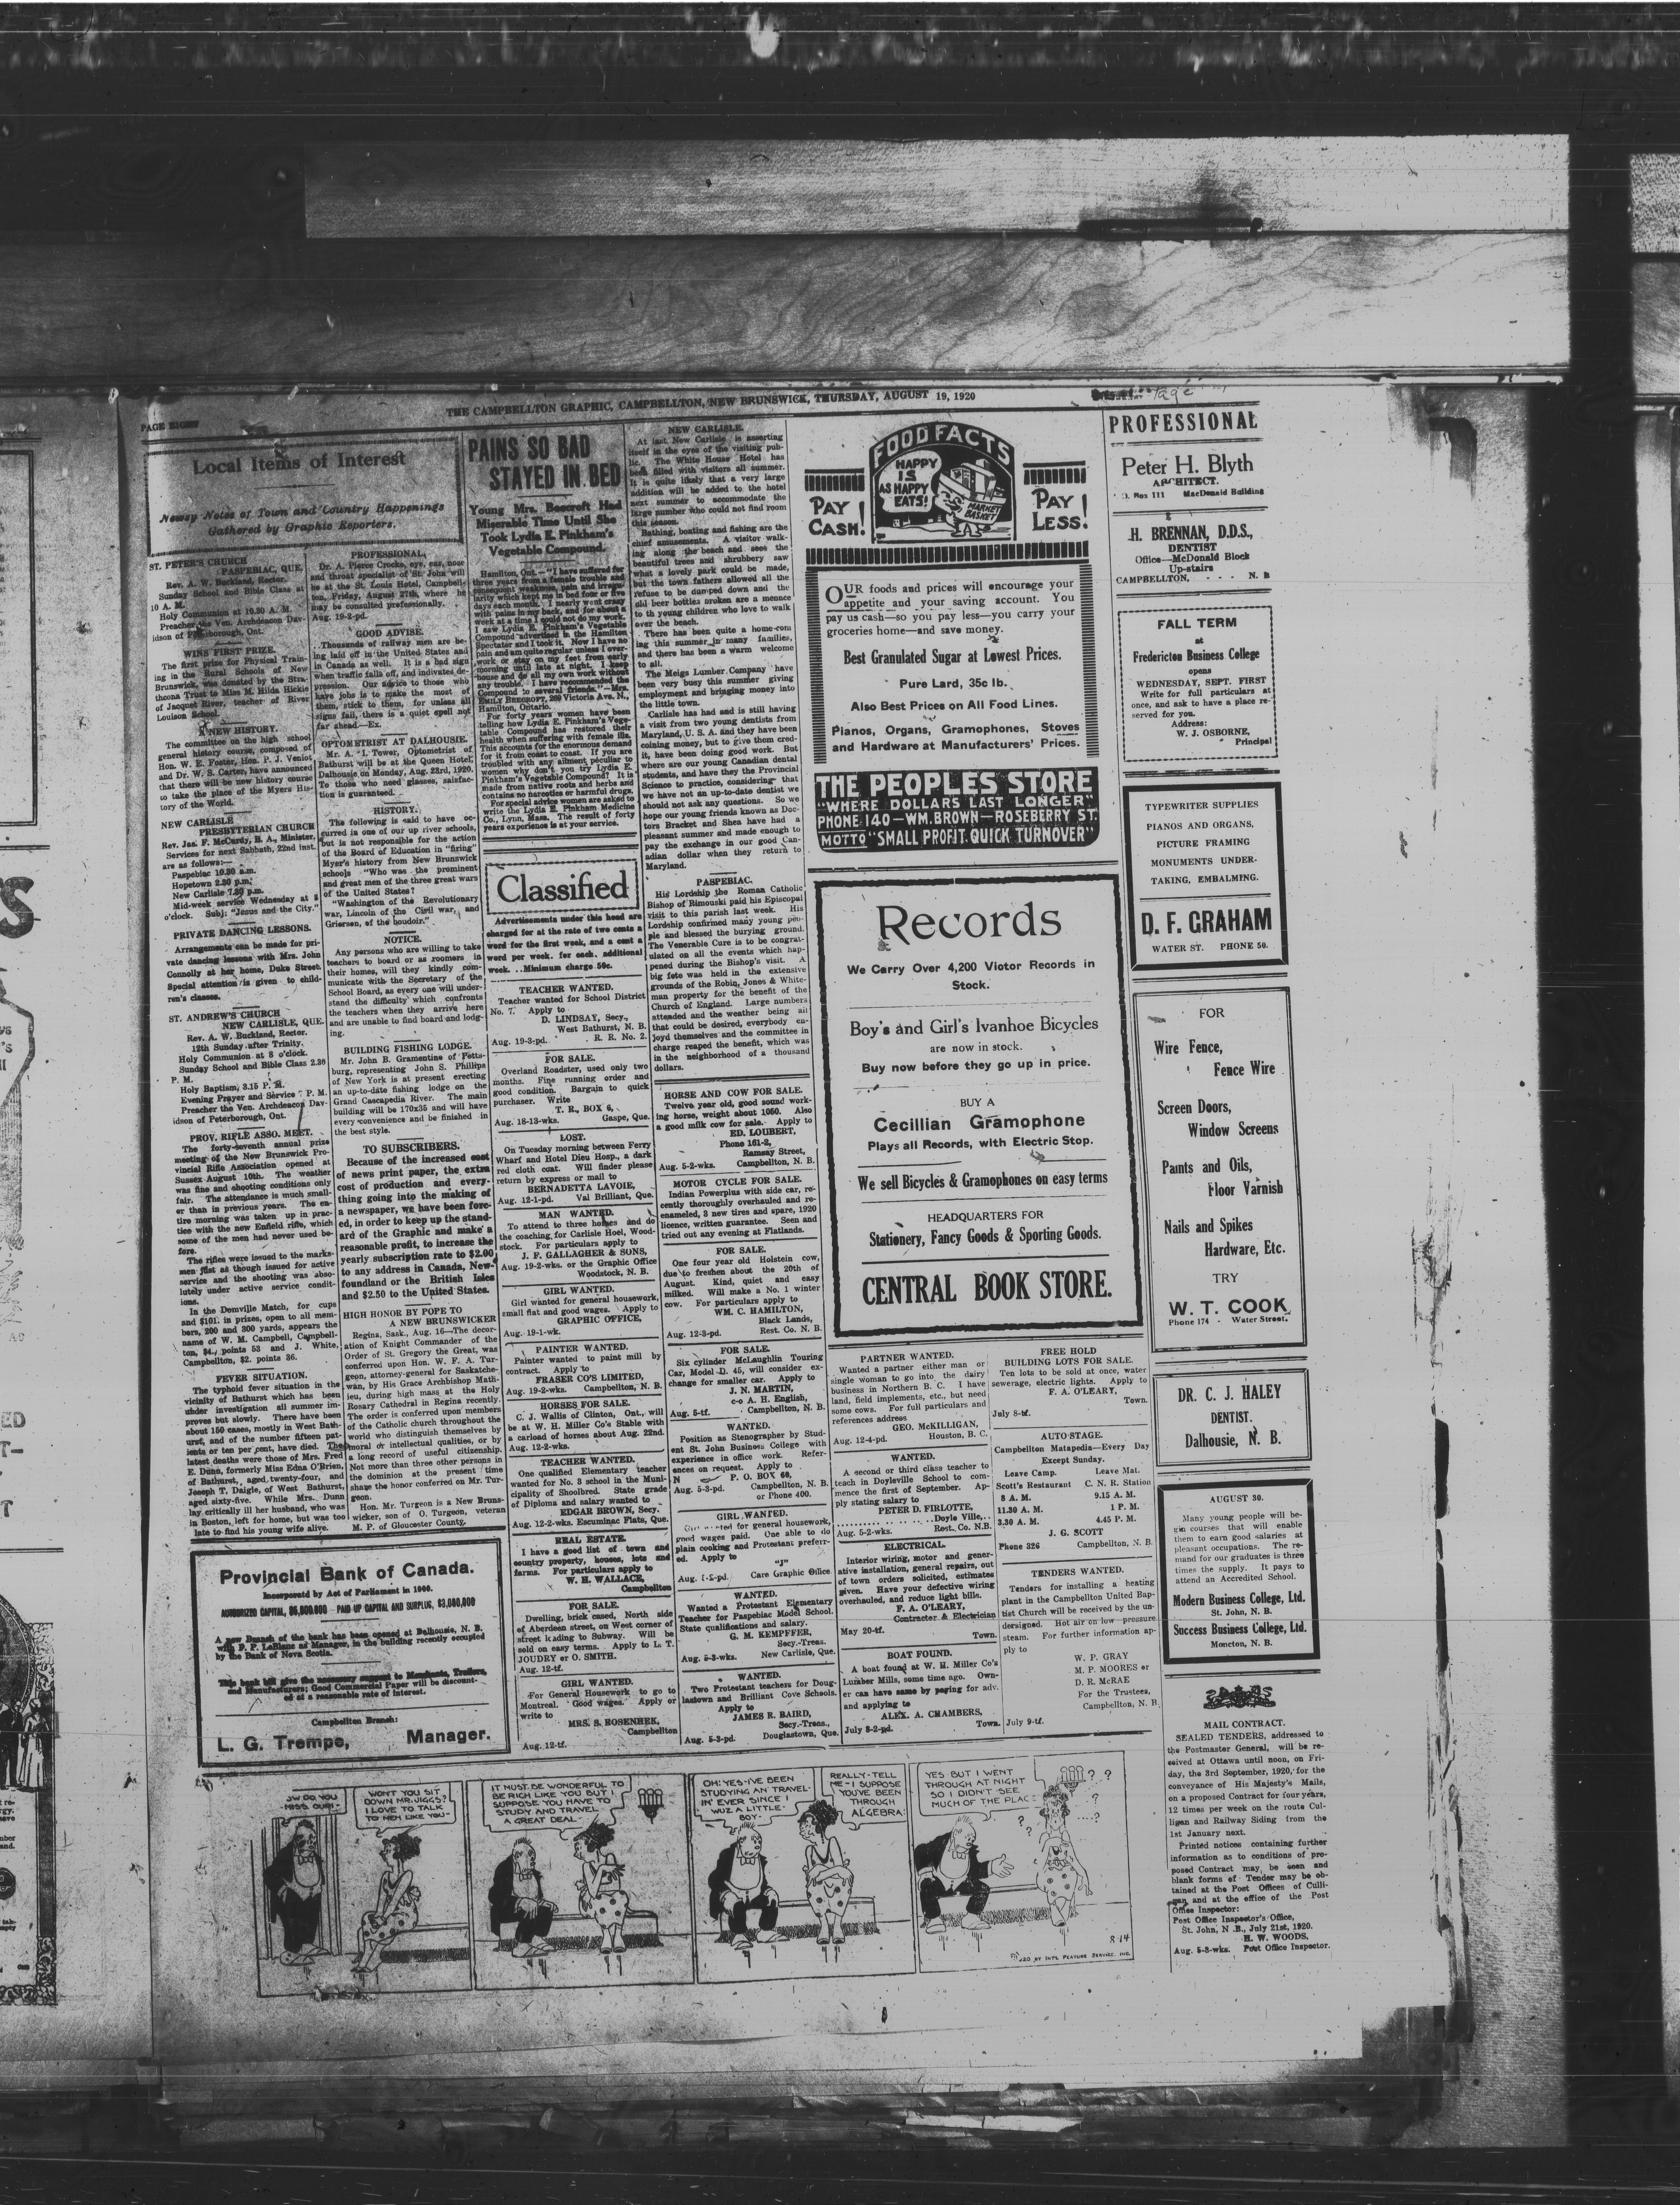 PAGE EIGHT
THE CAMPBELLTON GRAPHIC, CAMPBELLTON, NEW BRUNSWICK, THURSDAY, AUGUST 19, 1920
Local Items of Interest
Newsy Notes of Town and Country Happenings
Gathered by Graphic Reporters.
ST. PETER'S CHURCH
PASPEBIAC, QUE.
Rev. A. W. Buckland, Rector.
Sunday School and Bible Class at
10 A. M.
Holy Communion at 10.30 A. M.
Preacher the Ven. Archdeacon Dav-
idson of Peterborough, Ont.
WINS FIRST PRIZE.
The first prize for Physical Train-
ing in the Rural Schools of New
Brunswick, was donated by the Stra-
thcona Trust to Miss M. Hilda Hickie
of Jacquet River, teacher of River
Louison School.
A NEW HISTORY.
The committee on the high school
general history course, composed of
Hon. W. E. Foster, Hon. P. J. Veniot
and Dr. W. S. Carter, have announced
that there will be new history course
to take the place of the Myers His-
tory of the World.
NEW CARLISLE
PRESBYTERIAN CHURCH
Rev. Jas. F. McCurdy, B. A., Minister.
Services for next Sabbath, 22nd inst.
are as follows:—
Paspebiac 10.30 a.m.
Hopetown 2.30 p.m.
New Carlisle 7.30 p.m.
Mid-week service Wednesday at 8
o'clock. Subj: "Jesus and the City."
PRIVATE DANCING LESSONS.
Arrangements can be made for pri-
vate dancing lessons with Mrs. John
Connolly at her home, Duke Street.
Special attention is given to child-
ren's classes.
ST. ANDREW'S CHURCH
NEW CARLISLE, QUE.
Rev. A. W. Buckland, Rector.
12th Sunday after Trinity.
Holy Communion at 8 o'clock.
Sunday School and Bible Class 2.30
P. M.
Holy Baptism, 3.15 P. M.
Evening Prayer and Service 7 P. M.
Preacher the Ven. Archdeacon Dav-
idson of Peterborough, Ont.
PROV. RIFLE ASSO. MEET.
The forty-seventh annual prize
meeting of the New Brunswick Pro-
vincial Rifle Association opened at
Sussex August 10th. The weather
was fine and shooting conditions only
fair. The attendance is much small-
er than in previous years. The en-
tire morning was taken up in prac-
tice with the new Enfield rifle, which
some of the men had never used be-
fore.
The rifles were issued to the marks-
men just as though issued for active
service and the shooting was abso-
lutely under active service condit-
ions.
In the Domville Match, for cups
and $101. in prizes, open to all mem-
bers, 200 and 300 yards, appears the
name of W. M. Campbell, Campbell-
ton, $4., points 53 and J. White,
Campbellton, $2. points 36.
FEVER SITUATION.
The typhoid fever situation in the
vicinity of Bathurst which has been
under investigation all summer im-
proves but slowly. There have been
about 150 cases, mostly in West Bath-
urst, and of the number fifteen pat-
ients or ten per cent, have died. The
latest deaths were those of Mrs. Fred
E. Dunn, formerly Miss Edna O'Brien,
of Bathurst, aged twenty-four, and
Joseph T. Daigle, of West Bathurst,
aged sixty-five. While Mrs. Dunn
lay critically ill her husband, who was
in Boston, left for home, but was too
late to find his young wife alive.
PROFESSIONAL,
Dr. A. Pierce Crocke, eye, ear, nose
and throat specialist of St. John will
be at the St. Louis Hotel, Campbell-
ton, Friday, August 27th, where he
may be consulted professionally.
Aug. 19-2-pd.
GOOD ADVISE.
..Thousands of railway men are be-
ing laid off in the United States and
in Canada as well. It is a bad sign
when traffic falls off, and indivates de-
pression. Our advice to those who
have jobs is to make the most of
them, stick to them, for unless all
signs fail, there is a quiet spell not
far ahead.—Ex.
OPTOMETRIST AT DALHOUSIE.
Mr. A. I. Tower, Optometrist of
Bathurst will be at the Queen Hotel,
Dalhousie on Monday, Aug. 23rd, 1920.
To those who need glasses, satisfac-
tion is guaranteed.
HISTORY.
The following is said to have oc-
curred in one of our up river schools,
but is not responsible for the action
of the Board of Education in "firing"
Myer's history from New Brunswick
schools "Who was the prominent
and great men of the three great wars
of the United States?
"Washington of the Revolutionary
war, Lincoln of the Civil war, and
Grierson, of the boudoir."
NOTICE.
Any persons who are willing to take
teachers to board or as roomers in
their homes, will they kindly com-
municate with the Secretary of the
School Board, as every one will under-
stand the difficulty which confronts
the teachers when they arrive here
and are unable to find board and lodg-
ing.
BUILDING FISHING LODGE.
Mr. John B. Gramentine of Petts-
burg, representing John S. Phillips
of New York is at present erecting
an up-to-date fishing lodge on the
Grand Cascapedia River. The main
building will be 170x35 and will have
every convenience and be finished in
the best style.
TO SUBSCRIBERS.
Because of the increased cost
of news print paper, the extra
cost of production and every-
thing going into the making of
a newspaper, we have been forc-
ed, in order to keep up the stand-
ard of the Graphic and make a
reasonable profit, to increase the
yearly subscription rate to $2.00
to any address in Canada, New-
foundland or the British Isles
and $2.50 to the United States.
HIGH HONOR BY POPE TO
A NEW BRUNSWICKER
Regina, Sask., Aug. 16—The decor-
ation of Knight Commander of the
Order of St. Gregory the Great, was
conferred upon Hon. W. F. A. Tur-
geon, attorney-general for Saskatche-
wan, by His Grace Archbishop Math-
ieu, during high mass at the Holy
Rosary Cathedral in Regina recently.
The order is conferred upon members
of the Catholic church throughout the
world who distinguish themselves by
moral or intellectual qualities, or by
a long record of useful citizenship.
Not more than three other persons in
the dominion at the present time
share the honor conferred on Mr. Tur-
geon.
Hon. Mr. Turgeon is a New Bruns-
wicker, son of O. Turgeon, veteran
M. P. of Gloucester County.
Provincial Bank of Canada.
Incorporated by Act of Parliament in 1900.
AUTHORIZED CAPITAL, $5,000,000 — PAID UP CAPITAL AND SURPLUS, $3,080,000
A new Branch of the bank has been opened at Dalhousie, N. B.
with D. P. LeBlanc as Manager, in the building recently occupied
by the Bank of Nova Scotia.
This bank will give the necessary support to Merchants, Traders,
and Manufacturers; Good Commercial Paper will be discount-
ed at a reasonable rate of interest.
Campbellton Branch:
L. G. Trempe, Manager.
PAINS SO BAD
STAYED IN BED
Young Mrs. Beecroft Had
Miserable Time Until She
Took Lydia E. Pinkham's
Vegetable Compound.
Hamilton, Ont.—"I have suffered for
three years from a female trouble and
consequent weakness, pain and irregu-
larity which kept me in bed four or five
days each month. I nearly went crazy
with pains in my back, and for about a
week at a time I could not do my work.
I saw Lydia E. Pinkham's Vegetable
Compound advertised in the Hamilton
Spectator and I took it. Now I have no
pain and am quite regular unless I over-
work or stay on my feet from early
morning until late at night. I keep
house and do all my own work without
any trouble. I have recommended the
Compound to several friends."—Mrs.
EMILY BEECROFT, 269 Victoria Ave. N.,
Hamilton, Ontario.
For forty years women have been
telling how Lydia E. Pinkham's Vege-
table Compound has restored their
health when suffering with female ills.
This accounts for the enormous demand
for it from coast to coast. If you are
troubled with any ailment peculiar to
women why don't you try Lydia E.
Pinkham's Vegetable Compound? It is
made from native roots and herbs and
contains no narcotics or harmful drugs.
For special advice women are asked to
write the Lydia E. Pinkham Medicine
Co., Lynn, Mass. The result of forty
years experience is at your service.
Classified
Advertisements under this head are
charged for at the rate of two cents a
word for the first week, and a cent a
word per week. for each. additional
week. ..Minimum charge 50c.
TEACHER WANTED.
Teacher wanted for School District
No. 7. Apply to
D. LINDSAY, Secy.,
West Bathurst, N. B.
Aug. 19-3-pd. R. R. No. 2.
FOR SALE.
Overland Roadster, used only two
months. Fine running order and
good condition. Bargain to quick
purchaser. Write
T. R., BOX 6,
Aug. 18-13-wks. Gaspe, Que.
LOST.
On Tuesday morning between Ferry
Wharf and Hotel Dieu Hosp., a dark
red cloth coat. Will finder please
return by express or mail to
BERNADETTA LAVOIE,
Aug. 12-1-pd. Val Brilliant, Que.
MAN WANTED.
To attend to three horses and do
the coaching, for Carlisle Hoel, Wood-
stock. For particulars apply to
J. F. GALLAGHER & SONS,
Aug. 19-2-wks. or the Graphic Office
Woodstock, N. B.
GIRL WANTED.
Girl wanted for general housework,
small flat and good wages. Apply to
GRAPHIC OFFICE,
Aug. 19-1-wk.
PAINTER WANTED.
Painter wanted to paint mill by
contract. Apply to
FRASER CO'S LIMITED,
Aug. 19-2-wks. Campbellton, N. B.
HORSES FOR SALE.
C. J. Wallis of Clinton, Ont., will
be at W. H. Miller Co's Stable with
a carload of horses about Aug. 22nd.
Aug. 12-2-wks.
TEACHER WANTED.
One qualified Elementary teacher
wanted for No. 3 school in the Muni-
cipality of Shoolbred. State grade
of Diploma and salary wanted to
EDGAR BROWN, Secy.
Aug. 12-2-wks. Escuminac Flats, Que.
REAL ESTATE.
I have a good list of town and
country property, houses, lots and
farms. For particulars apply to
W. H. WALLACE,
Campbellton
FOR SALE.
Dwelling, brick cased, North side
of Aberdeen street, on West corner of
street leading to Subway. Will be
sold on easy terms. Apply to L. T.
JOUDRY or O. SMITH.
Aug. 12-tf.
GIRL WANTED.
For General Housework to go to
Montreal. Good wages. Apply or
write to
MRS. S. ROSENHEK,
Campbellton
Aug. 12-tf.
NEW CARLISLE.
At last New Carlisle is asserting
itself in the eyes of the visiting pub-
lic. The White House Hotel has
been filled with visitors all summer.
It is quite likely that a very large
addition will be added to the hotel
next summer to accommodate the
large number who could not find room
this season.
Bathing, boating and fishing are the
chief amusements. A visitor walk-
ing along the beach and sees the
beautiful trees and shrubbery saw
what a lovely park could be made,
but the town fathers allowed all the
refuse to be dumped down and the
old beer bottles broken are a menace
to th young children who love to walk
over the beach.
There has been quite a home-com
ing this summer in many families,
and there has been a warm welcome
to all.
The Meigs Lumber Company have
been very busy this summer giving
employment and bringing money into
the little town.
Carlisle has had and is still having
a visit from two young dentists from
Maryland, U. S. A. and they have been
coining money, but to give them cred-
it, have been doing good work. But
where are our young Canadian dental
students, and have they the Provincial
Science to practice, considering that
we have not an up-to-date dentist we
should not ask any questions. So we
hope our young friends known as Doc-
tors Bracket and Shea have had a
pleasant summer and made enough to
pay the exchange in our good Can-
adian dollar when they return to
Maryland.
PASPEBIAC.
His Lordship the Roman Catholic
Bishop of Rimouski paid his Episcopal
visit to this parish last week. His
Lordship confirmed many young peu-
ple and blessed the burying ground.
The Venerable Cure is to be congrat-
ulated on all the events which hap-
pened during the Bishop's visit. A
big fete was held in the extensive
grounds of the Robin, Jones & White-
man property for the benefit of the
Church of England. Large numbers
attended and the weather being all
that could be desired, everybody en-
joyd themselves and the committee in
charge reaped the benefit, which was
in the neighborhood of a thousand
dollars.
HORSE AND COW FOR SALE.
Twelve year old, good sound work-
ing horse, weight about 1050. Also
a good milk cow for sale. Apply to
ED. LOUBERT,
Phone 161-2,
Ramsay Street,
Aug. 5-2-wks. Campbellton, N. B.
MOTOR CYCLE FOR SALE.
Indian Powerplus with side car, re-
cently thoroughly overhauled and re-
enameled, 3 new tires and spare, 1920
licence, written guarantee. Seen and
tried out any evening at Flatlands.
FOR SALE.
One four year old Holstein cow,
due to freshen about the 20th of
August. Kind, quiet and easy
milked. Will make a No. 1 winter
cow. For particulars apply to
WM. C. HAMILTON,
Black Lands,
Aug. 12-3-pd. Rest. Co. N. B.
FOR SALE.
Six cylinder McLaughlin Touring
Car, Model D. 45, will consider ex-
change for smaller car. Apply to
J. N. MARTIN,
c-o A. H. English,
Aug. 5-tf. Campbellton, N. B.
WANTED.
Position as Stenographer by Stud-
ent St. John Business College with
experience in office work. Refer-
ences on request. Apply to
N P. O. BOX 60,
Aug. 5-3-pd. Campbellton, N. B.
or Phone 400.
GIRL WANTED.
Girl wanted for general housework,
good wages paid. One able to do
plain cooking and Protestant preferr-
ed. Apply to
"J"
Care Graphic Office
WANTED.
Wanted a Protestant Elementary
Teacher for Paspebiac Model School.
State qualifications and salary.
G. M. KEMPFFER,
Secy.-Treas.
Aug. 5-3-wks. New Carlisle, Que.
WANTED.
Two Protestant teachers for Doug-
lastown and Brilliant Cove Schools.
Apply to
JAMES R. BAIRD,
Secy.-Treas.,
Aug. 5-3-pd. Douglastown, Que.
FOOD FACTS
HAPPY
IS
AS HAPPY
EATS!
MARKET
BASKET
PAY
CASH!
PAY
LESS!
OUR foods and prices will encourage your
appetite and your saving account. You
pay us cash—so you pay less—you carry your
groceries home—and save money.
Best Granulated Sugar at Lowest Prices.
Pure Lard, 35c lb.
Also Best Prices on All Food Lines.
Pianos, Organs, Gramophones, Stoves
and Hardware at Manufacturers' Prices.
THE PEOPLES STORE
"WHERE DOLLARS LAST LONGER"
PHONE 140—WM. BROWN—ROSEBERRY ST.
MOTTO "SMALL PROFIT. QUICK TURNOVER"
Records
We Carry Over 4,200 Victor Records in
Stock.
Boy's and Girl's Ivanhoe Bicycles
are now in stock.
Buy now before they go up in price.
BUY A
Cecillian Gramophone
Plays all Records, with Electric Stop.
We sell Bicycles & Gramophones on easy terms
HEADQUARTERS FOR
Stationery, Fancy Goods & Sporting Goods.
CENTRAL BOOK STORE.
PARTNER WANTED.
Wanted a partner either man or
single woman to go into the dairy
business in Northern B. C. I have
land, field implements, etc., but need
some cows. For full particulars and
references address
GEO. McKILLIGAN,
Aug. 12-4-pd. Houston, B. C.
WANTED.
A second or third class teacher to
teach in Doyleville School to com-
mence the first of September. Ap-
ply stating salary to
PETER D. FIRLOTTE,
Doyle Ville,..
Aug. 5-2-wks. Rest. Co. N.B.
ELECTRICAL.
Interior wiring, motor and gener-
ative installation, general repairs, out
of town orders solicited, estimates
given. Have your defective wiring
overhauled, and reduce light bills.
F. A. O'LEARY,
Contracter & Electrician
May 20-tf. Town.
BOAT FOUND.
A boat found at W. H. Miller Co's
Lumber Mills, some time ago. Own-
er can have same by paying for adv.
and applying to
ALEX. A. CHAMBERS,
July 8-2-pd. Town.
FREE HOLD
BUILDING LOTS FOR SALE.
Ten lots to be sold at once, water
sewerage, electric lights. Apply to
F. A. O'LEARY,
Town.
July 8-tf.
AUTO STAGE.
Campbellton Matapedia—Every Day
Except Sunday.
Leave Camp. Leave Mat.
Scott's Restaurant C. N. R. Station
8 A. M. 9.15 A. M.
11.30 A. M. 1 P. M.
3.30 A. M. 4.45 P. M.
J. G. SCOTT
Phone 326 Campbellton, N. B.
TENDERS WANTED.
Tenders for installing a heating
plant in the Campbellton United Bap-
tist Church will be received by the un-
dersigned. Hot air on low pressure
steam. For further information ap-
ply to
W. P. GRAY
M. P. MOORES or
D. R. McRAE
For the Trustees,
Campbellton, N. B.
July 9-tf.
PROFESSIONAL
Peter H. Blyth
ARCHITECT.
Box 111 MacDonald Building
H. BRENNAN, D.D.S.,
DENTIST
Office—McDonald Block
Up-stairs
CAMPBELLTON, - - - N. B
FALL TERM
at
Fredericton Business College
opens
WEDNESDAY, SEPT. FIRST
Write for full particulars at
once, and ask to have a place re-
served for you.
Address:
W. J. OSBORNE,
Principal
TYPEWRITER SUPPLIES
PIANOS AND ORGANS,
PICTURE FRAMING
MONUMENTS UNDER-
TAKING, EMBALMING.
D. F. GRAHAM
WATER ST. PHONE 50.
FOR
Wire Fence,
Fence Wire
Screen Doors,
Window Screens
Paints and Oils,
Floor Varnish
Nails and Spikes
Hardware, Etc.
TRY
W. T. COOK
Phone 174 - Water Street.
DR. C. J. HALEY
DENTIST.
Dalhousie, N. B.
AUGUST 30.
Many young people will be-
gin courses that will enable
them to earn good salaries at
pleasant occupations. The re-
mand for our graduates is three
times the supply. It pays to
attend an Accredited School.
Modern Business College, Ltd.
St. John, N. B.
Success Business College, Ltd.
Moncton, N. B.
MAIL CONTRACT.
SEALED TENDERS, addressed to
the Postmaster General, will be re-
ceived at Ottawa until noon, on Fri-
day, the 3rd September, 1920, for the
conveyance of His Majesty's Mails,
on a proposed Contract for four years,
12 times per week on the route Cul-
ligan and Railway Siding from the
1st January next.
Printed notices containing further
information as to conditions of pro-
posed Contract may be seen and
blank forms of Tender may be ob-
tained at the Post Offices of Culli-
gan and at the office of the Post
Office Inspector:
Post Office Inspector's Office,
St. John, N .B., July 21st, 1920.
H. W. WOODS,
Aug. 5-3-wks. Post Office Inspector.
OW DO YOU
MISS OUR!-
WON'T YOU SIT
DOWN MR. JIGGS?
I LOVE TO TALK
TO MEN LIKE YOU-
IT MUST BE WONDERFUL TO
BE RICH LIKE YOU BUT I
SUPPOSE YOU HAVE TO
STUDY AND TRAVEL
A GREAT DEAL-
OH! YES-I'VE BEEN
STUDYING AN' TRAVEL-
IN' EVER SINCE I
WUZ A LITTLE
BOY-
REALLY-TELL
ME-I SUPPOSE
YOU'VE BEEN
THROUGH
ALGEBRA!
YES BUT I WENT
THROUGH AT NIGHT
SO I DIDN'T SEE
MUCH OF THE PLACE
8-14
1920 BY INT'L FEATURE SERVICE, INC.